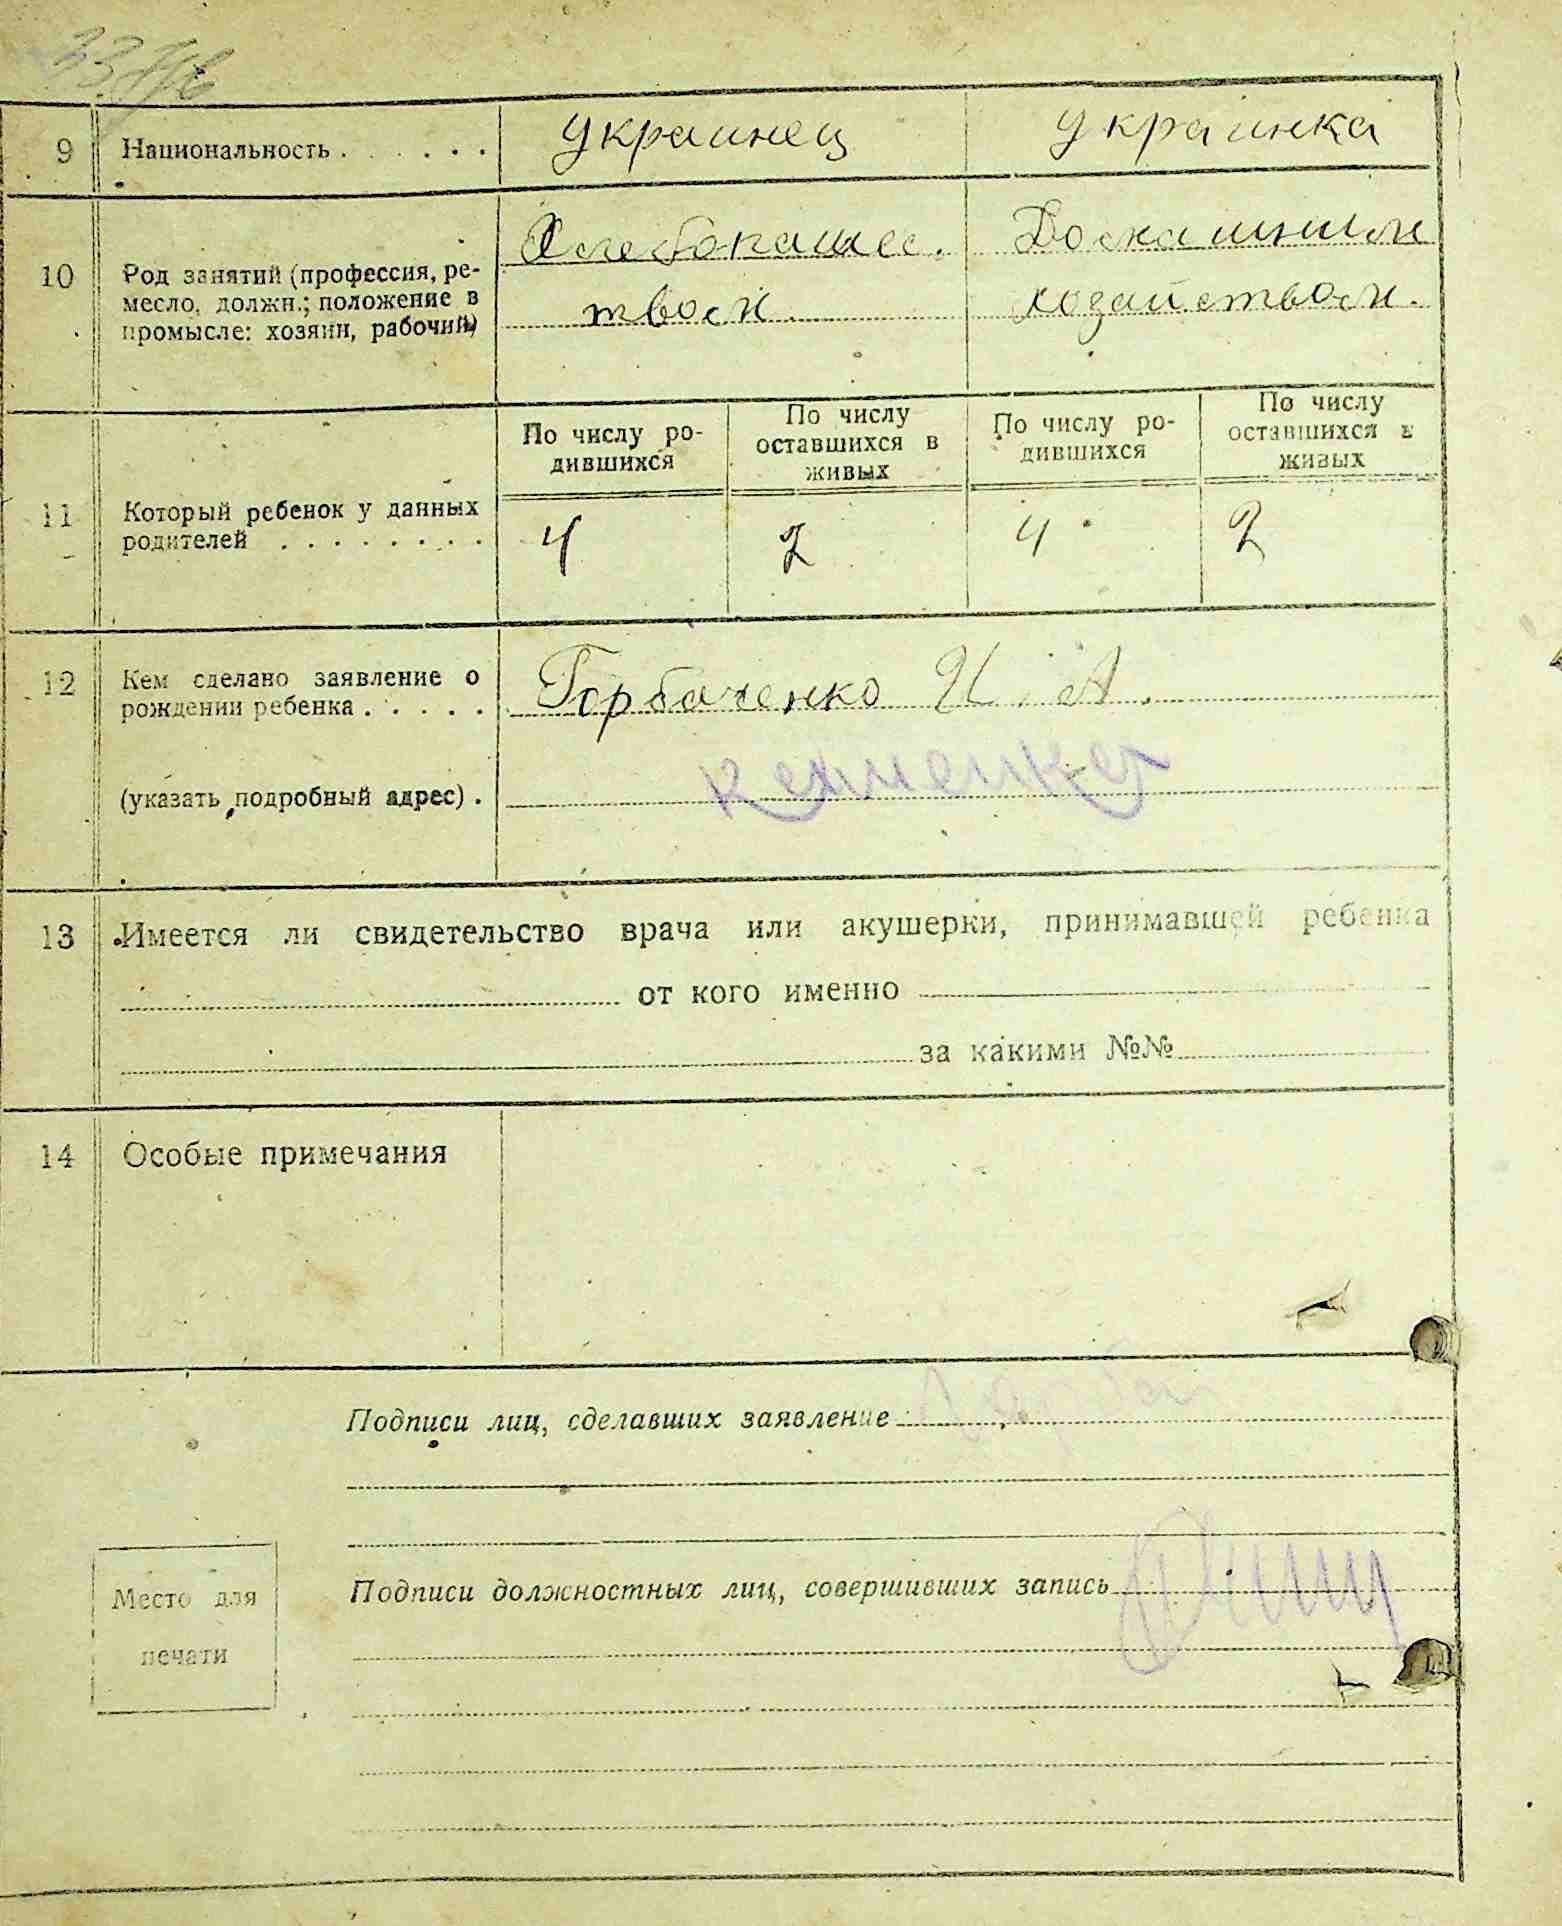 9 Национальность . . . . . . украинец украинка
10 Род занятий (профессия, ре-
месло, должн.; положение в
промысле: хозяин, рабочий)
Хлебопашес.
твом.
Домашним
хозайством.
По числу ро-
дившихся
По числу
оставшихся в
живых
По числу ро-
дившихся
По числу
оставшихся в
живых
11 Который ребенок у данных
родителей . . . . . . . .
4 2 4 2
12 Кем сделано заявление о
рождении ребенка . . . . . Горбаченко И. А.
(указать подробный адрес) .
13 Имеется ли свидетельство врача или акушерки, принимавшей ребенка
от кого именно
за какими №№
14 Особые примечания
Подписи лиц, сделавших заявление
Подписи должностных лиц, совершивших запись
Место для
печати